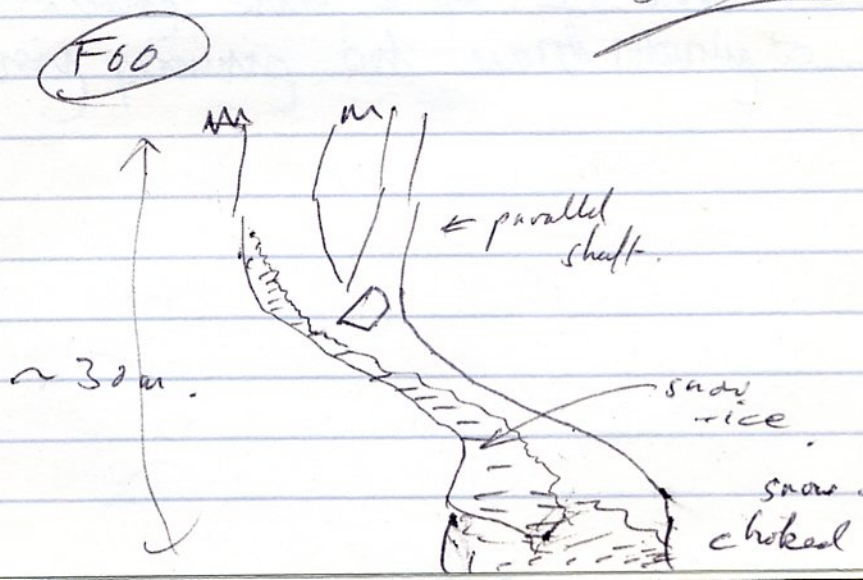 F60
← parallel
shaft.
~ 30m.
snow
+ice
snow.
choked